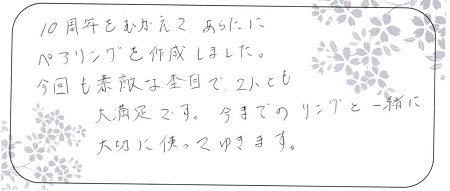 10周年をむかえて、あらたに
ペアリングを作成しました。
今回も素敵な杢目で、2人とも
大満足です。今までのリングと一緒に
大切に使ってゆきます。